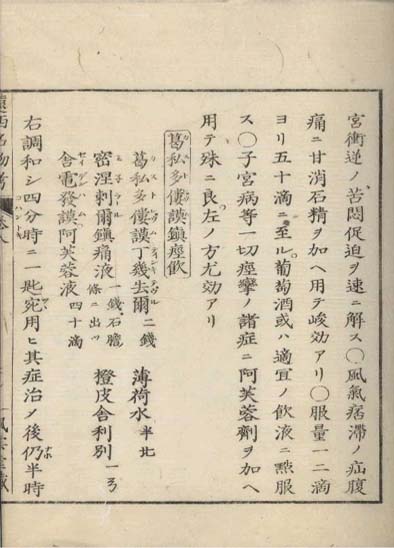 宮衝逆ノ苦悶促迫ヲ速ニ解ス〇風氣痞滞ノ疝腹
痛ニ甘消石精ヲ加ヘ用テ峻効アリ〇服量一二滴
ヨリ五十滴ニ至ル葡萄酒或ハ適宜ノ飲液ニ㸃服
ス〇子宮病等一切痙攣ノ諸症ニ阿芙蓉劑ヲ加ヘ
用テ殊ニ良左ノ方尤効アリ
葛私多僂謨鎮痙飲
葛私多僂謨丁幾去爾二錢
薄荷水
密涅剌爾鎮痛液一錢石膽條ニ出ツ
橙皮舍利別
舍電發謨阿芙蓉液四十滴
右調和シ四分時ニ一匙宛用ヒ其症治メ後仍半時
遠西名物考